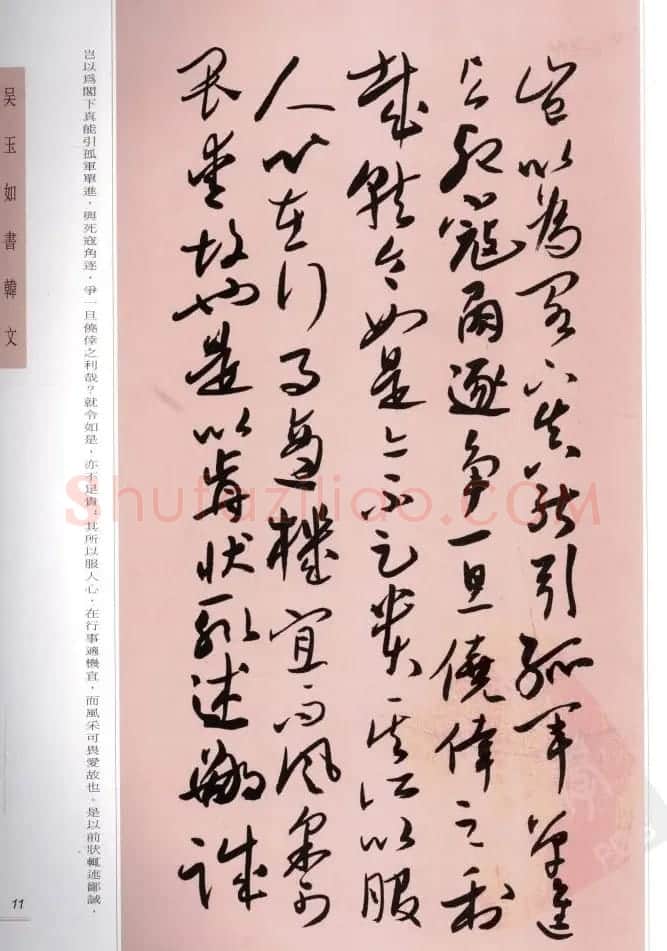 豈以為閣下真能引孤軍單進
與死寇角逐爭一旦僥倖之利
哉就令如是亦不足貴其所以服
人心在行事適機宜而風采可
畏愛故也是以前狀輒述鄙誠
豈以爲閣下真能引孤軍單進，與死寇角逐，爭一旦僥倖之利哉？就令如是，亦不足貴，其所以服人心，在行事適機宜，而風采可畏愛故也。是以前狀輒述鄙誠，
吴玉如書韓文
11
Shufaziliao.com